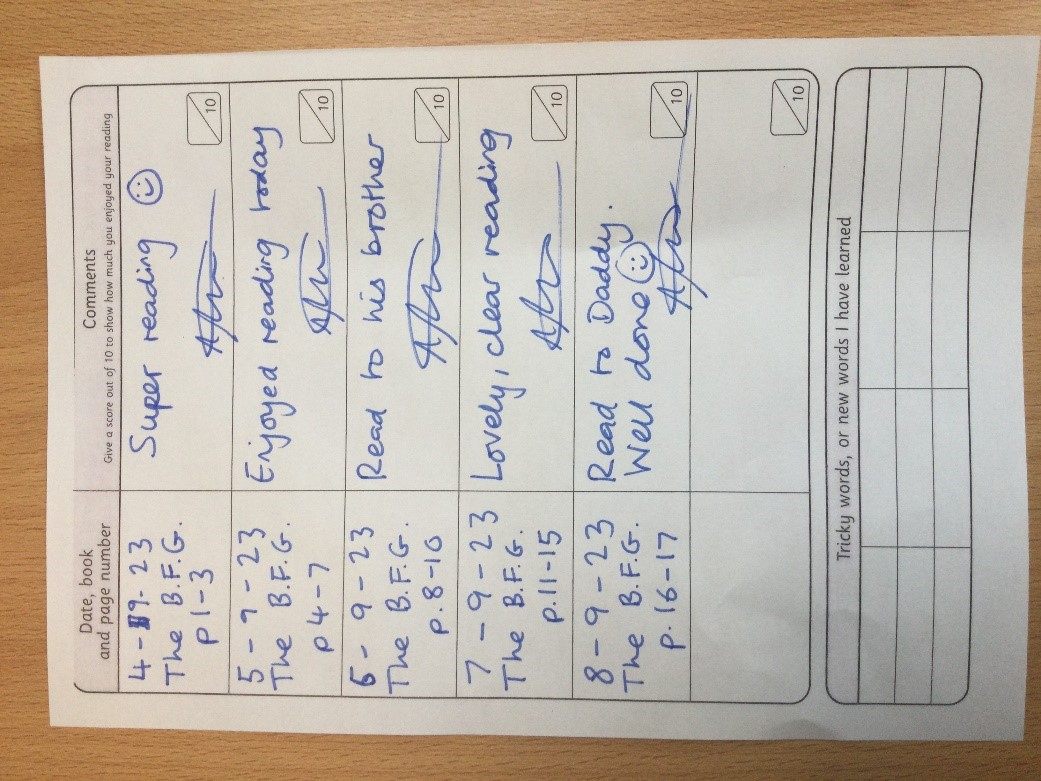 Date, book
and page number
Comments
Give a score out of 10 to show how much you enjoyed your reading
4-9-23
The B.F.G.
p 1-3
Super reading
10
5-9-23
The B.F.G.
p 4-7
Enjoyed reading today
10
6-9-23
The B.F.G.
p.8-10
Read to his brother
10
7-9-23
The B.F.G.
p.11-15
Lovely, clear reading
10
8-9-23
The B.F.G.
p.16-17
Read to Daddy.
Well done
10
10
Tricky words, or new words I have learned